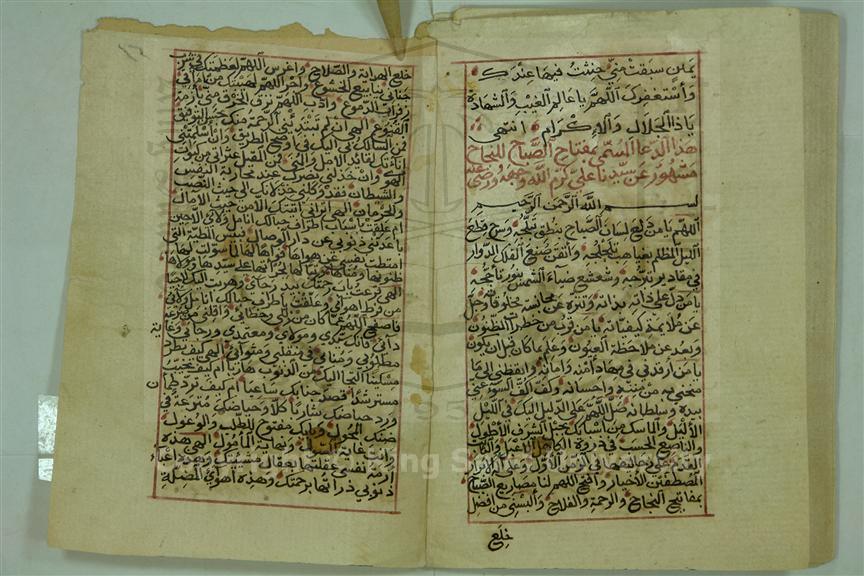 يملن سبقت مني جنئت فيما عندك
وأستغفرك اللهم يا عالم الغيب والشهادة
يا ذا الجلال والإكرام انتهى
هذا الدعا المسمى بمفتاح الصباح للنجاح
مشهور عن سيدنا علي كرم الله وجهه ورضى عنه
بسم الله الرحمن الرحيم
اللهم يا من دلع لسان الصباح بنطق تبلجه وسرح قطع
الليل المظلم بغياهب تلجلجه وأتقن صنع الفلك الدوار
في مقادير تبرجه وشعشع ضياء الشمس بنور تأججه
يا من دل على ذاته بذاته وتنزه عن مجانسة مخلوقاته وجل
عن ملايمة كيفياته يا من قرب من خطرات الظنون
وبعد عن ملاحظة العيون وعلم بما كان قبل ان يكون
يا من أرقدني في مهاد أمنه وأمانه وايقظني الى ما
منحني به من مننه واحسانه وكف اكف السوء عني
بيده وسلطانه صل اللهم على الدليل اليك في الليل
الأليل والماسك من أسبابك بحبل الشرف الأطول
والناصع الحسب في ذروة الكاهل الأعبل والثابت
القدم على زحاليفها في الزمن الأول وعلى اله
المصطفين الأخيار وافتح اللهم لنا مصاريع الصباح
بمفاتيح النجاح والرحمة والفلاح وألبسني من افضل
خلع
خلع الهداية والصلاح واغرس اللهم لعظمتك في شرب
جناني ينابيع الخشوع واجر اللهم لهيبتك من اماقي
زفرات الدموع وادب اللهم نزق الخرق مني بأزمة
القنوع الهي ان لم تبتدئني الرحمة منك بحسن التوفيق
فمن السالك بي اليك في واضح الطريق وان أسلمتني
اناتك لقائد الامل والمنى فمن المقيل عثراتي من كبوات
الهوى وان خذلني نصرك عند محاربة النفس
والشيطان فقد وكلني خذلانك الى حيث النصب
والحرمان الهي اتراني اتيتك الا من حيث الامال
ام علقت باسباب اطراف حبالك انامل ولائي الا حين
باعدتني ذنوبي عن دار الوصال فبئس المطية التي
امتطت نفسي من هواها فواها لها لما سولت لها
ظنونها ومناها وتبا لها لجرأتها على سيدها ومولاها
الهي قرعت باب رحمتك بيد رجائي وهربت اليك لاجئا
من فرط اهوائي وعلقت باطراف حبالك انامل ولائي
فاصفح اللهم عما كان من زللي وخطائي واقلني من صرعة
دائي فانك سيدي ومولاي ومعتمدي ورجائي وغاية
مطلوبي ومناي في منقلبي ومثواي الهي كيف تطرد
مسكينا التجا اليك من الذنوب هاربا ام كيف تخيب
مسترشدا قصد جنابك ساعيا ام كيف ترد ظمان
ورد حياضك شاربا كلا وحياضك مترعة في
ضنك المحول وبابك مفتوح للطلب والوغول
وانت غاية السول ونهاية المأمول الهي هذه
ازمة نفسي عقلتها بعقال مشيتك وهذه اعباء
ذنوبي دراتها برحمتك وهذه اهوائي المضلة